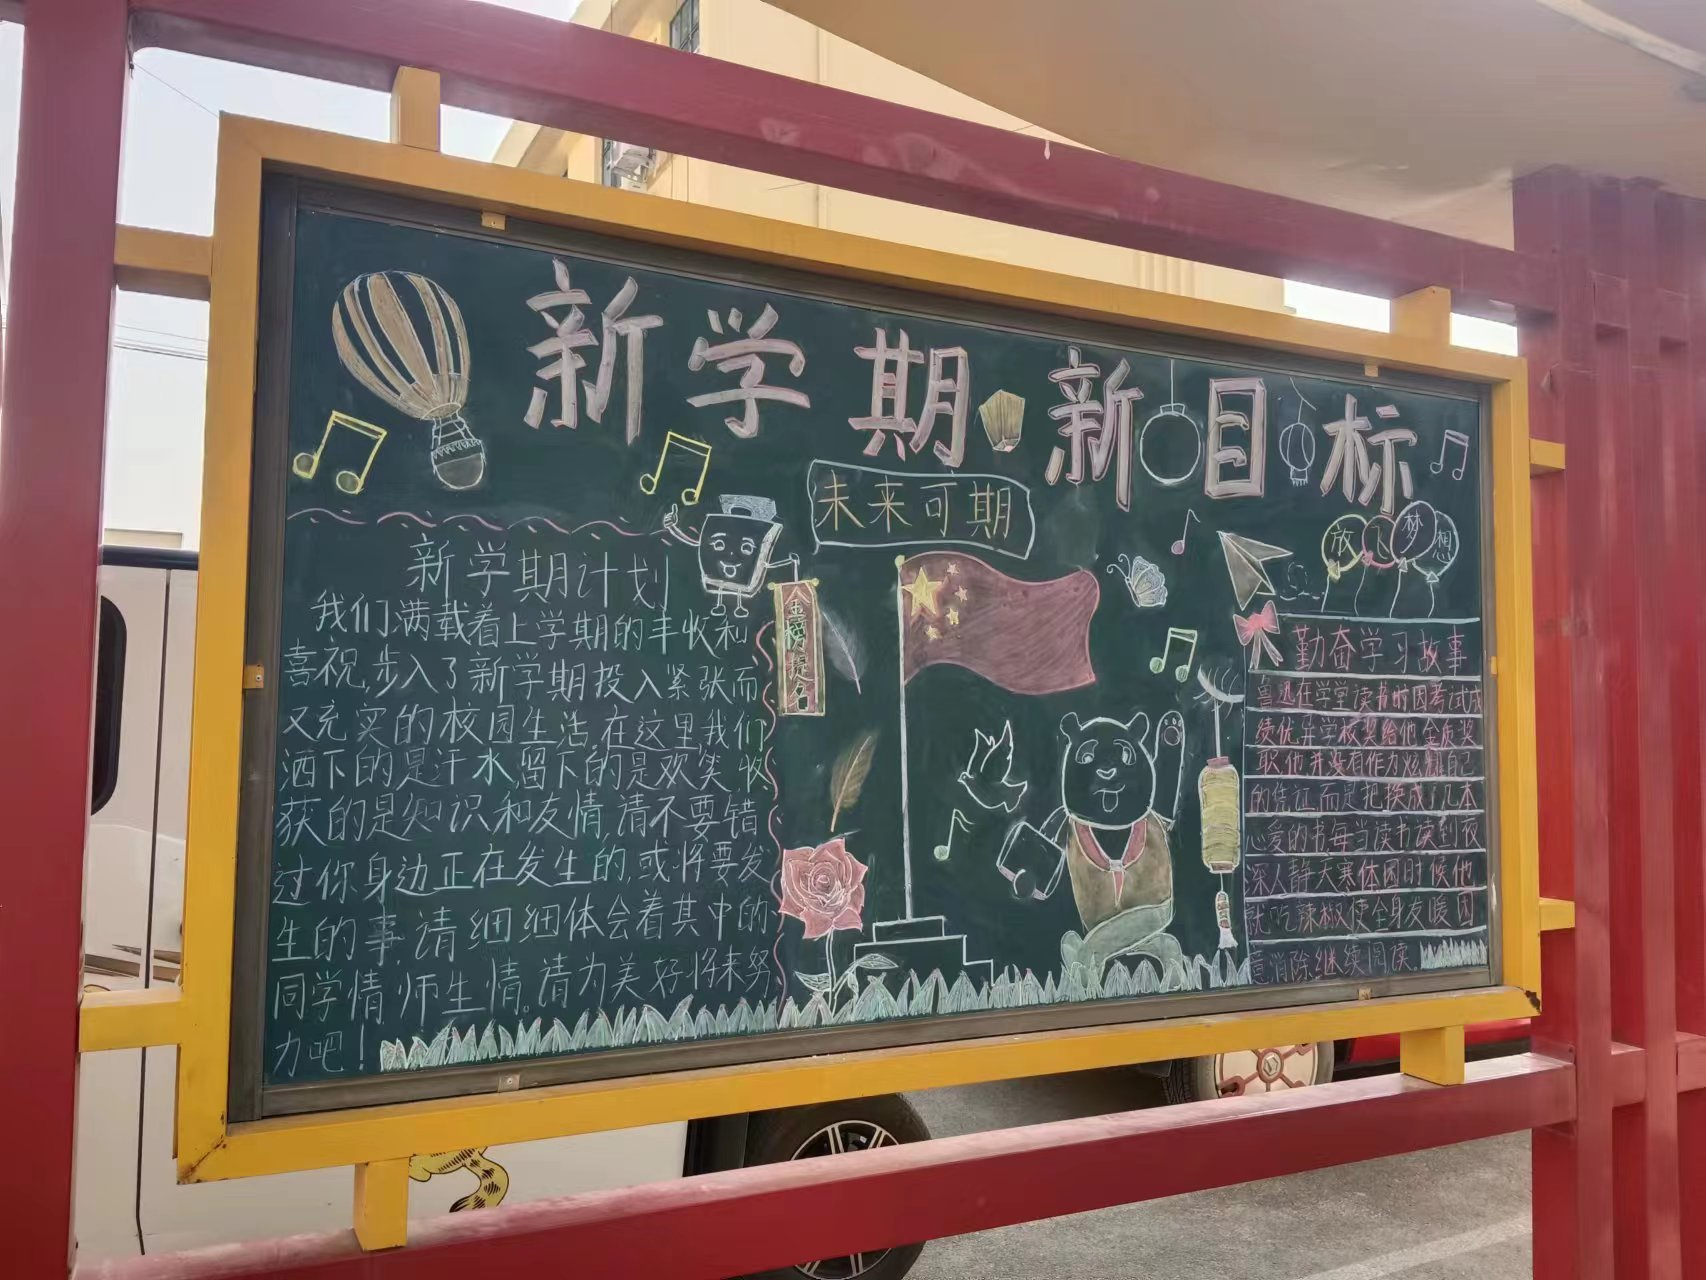 新学期新目标
未来可期
放飞梦想
新学期计划
我们满载着上学期的丰收和
喜祝,步入了新学期投入紧张而
又充实的校园生活,在这里我们
洒下的是汗水,留下的是欢笑,收
获的是知识和友情,请不要错
过你身边正在发生的,或将要发
生的事,请细细体会着其中的
同学情师生情。请为美好将来努
力吧!
金榜提名
勤奋学习故事
鲁迅在学堂读书时因考试成
绩优异学校奖给他金质奖
取他并没有作为炫耀自己
的凭证而是把换成了几本
心爱的书每当读书读到夜
深人静天寒体困时候他
就吃辣椒使全身发暖困
意消除继续阅读。